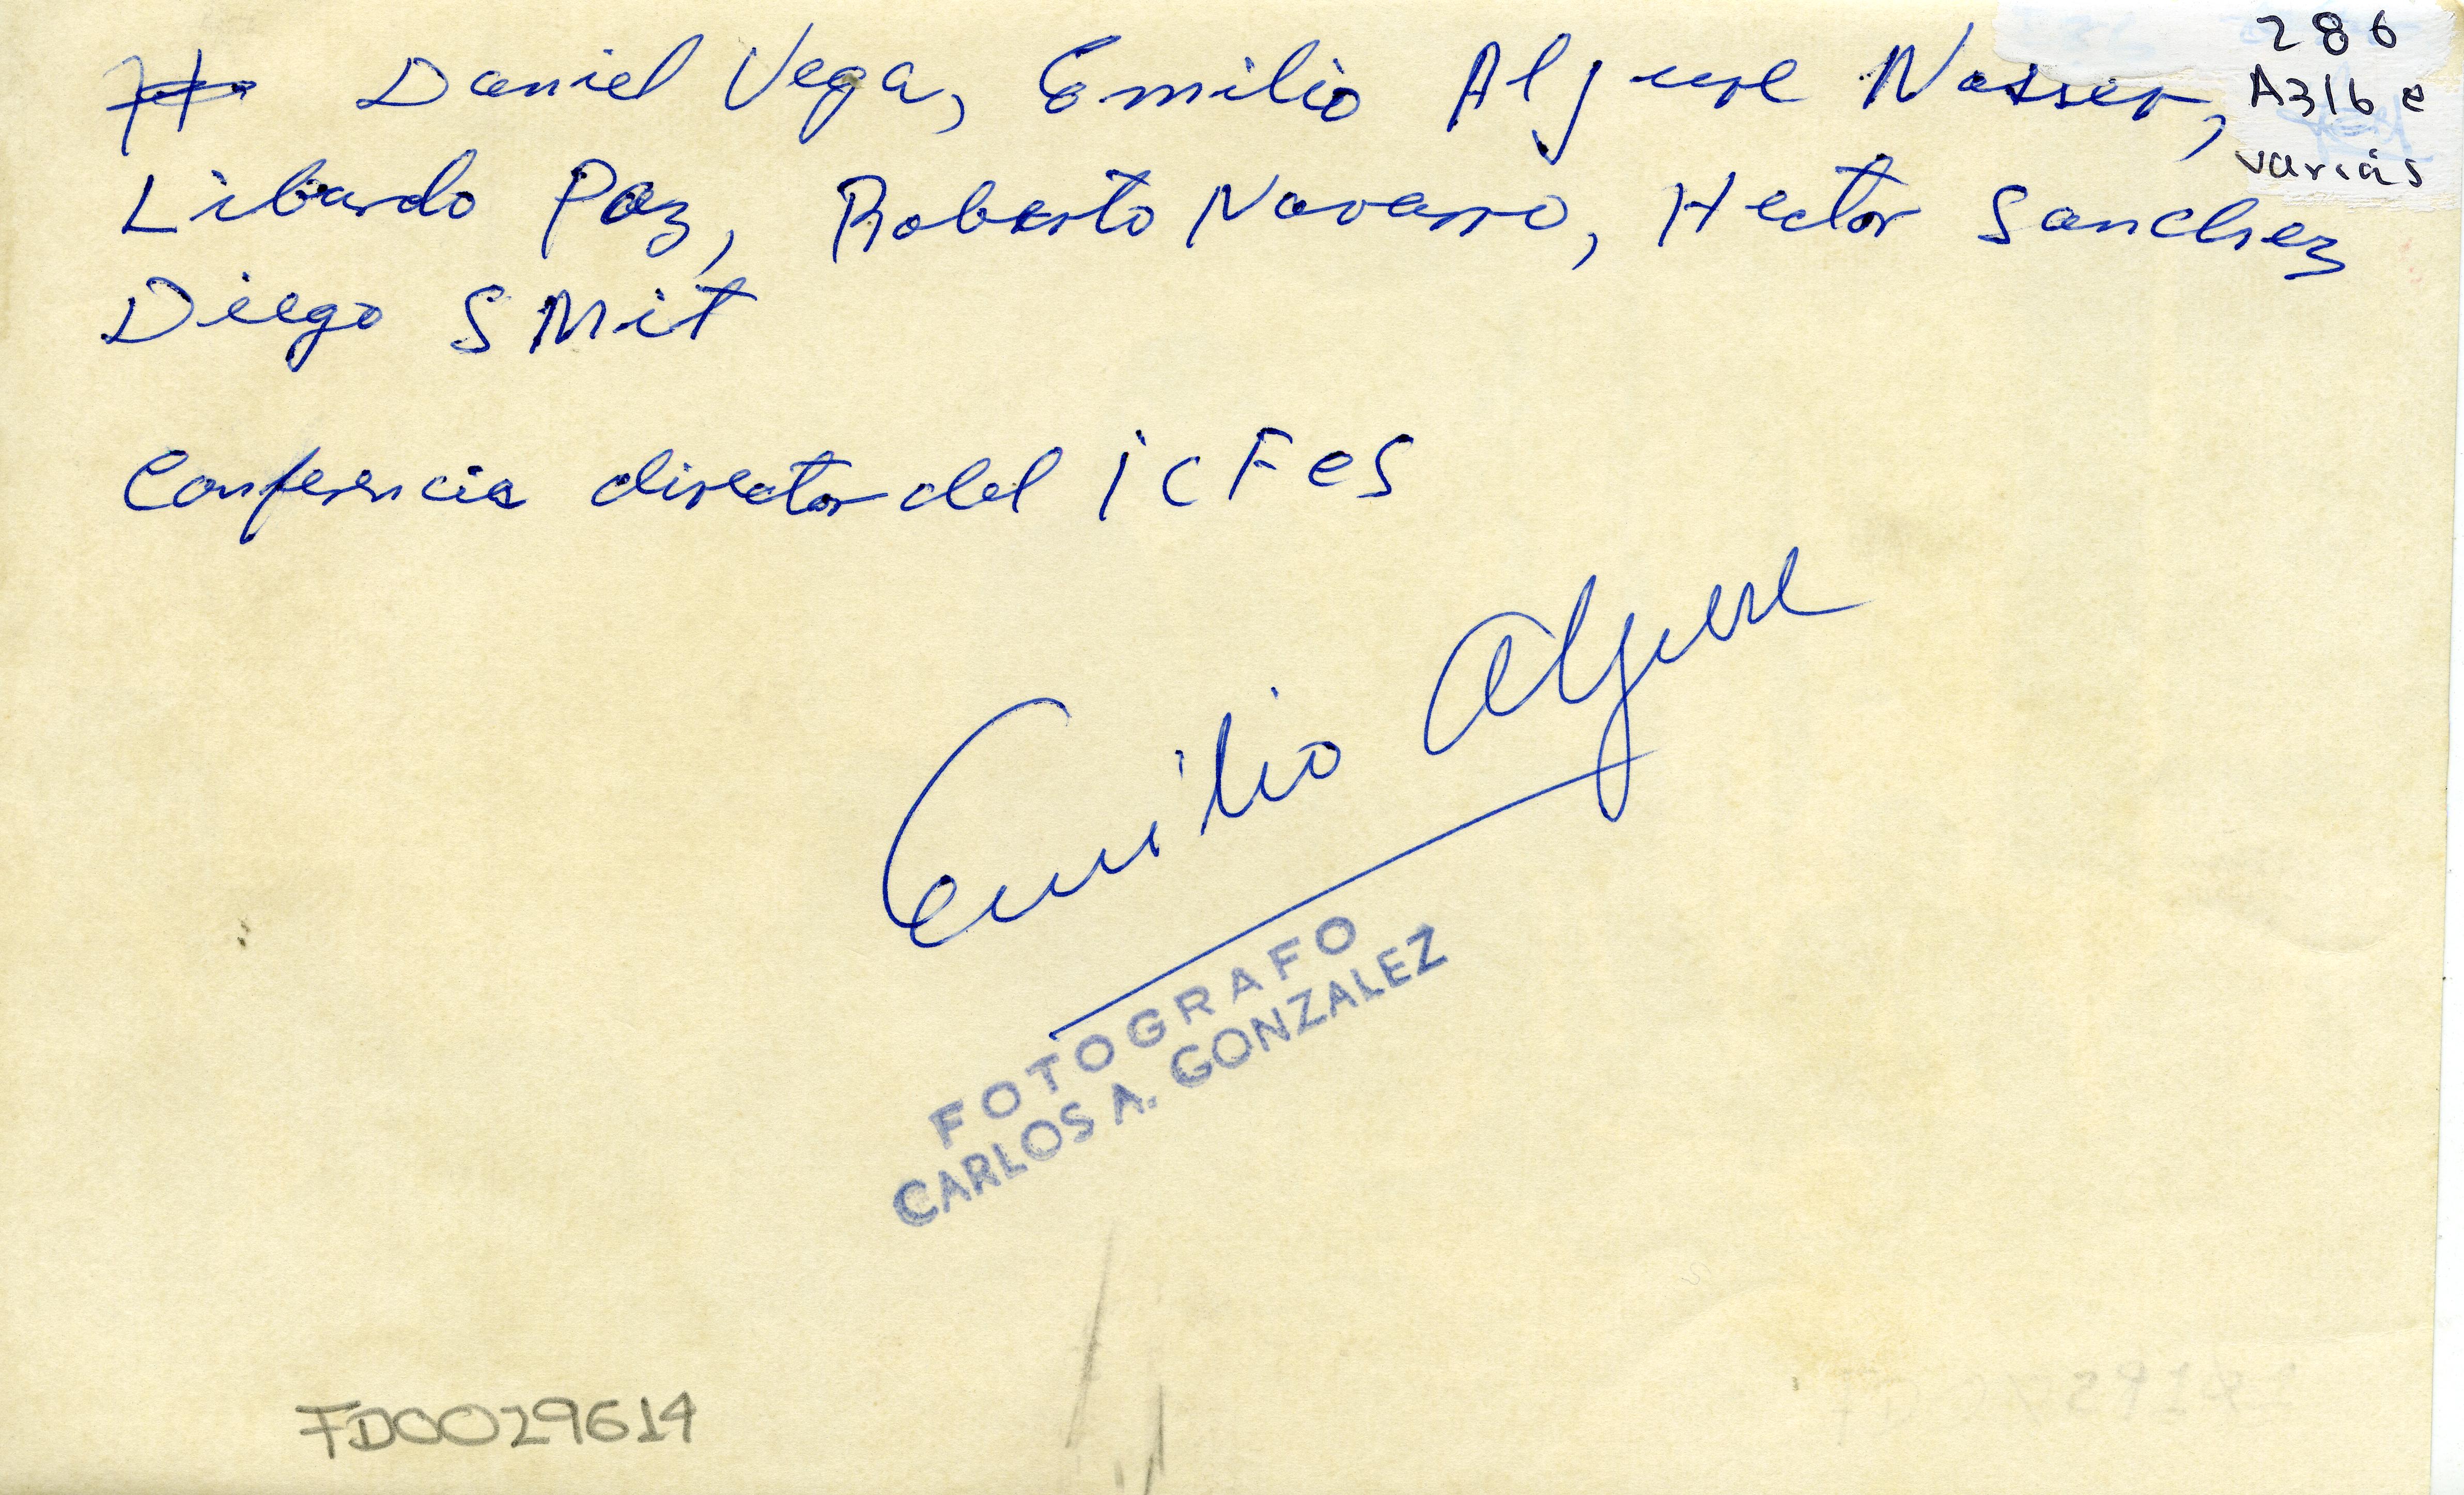 Daniel Vega, Emilio Aljure Nasser,
Libardo Paz, Roberto Navarro, Hector Sanchez
Diego SMit
Conferencia director del iCFeS
286
A316e
varias
Emilio Aljure
FOTOGRAFO
CARLOS A. GONZALEZ
FD0029614